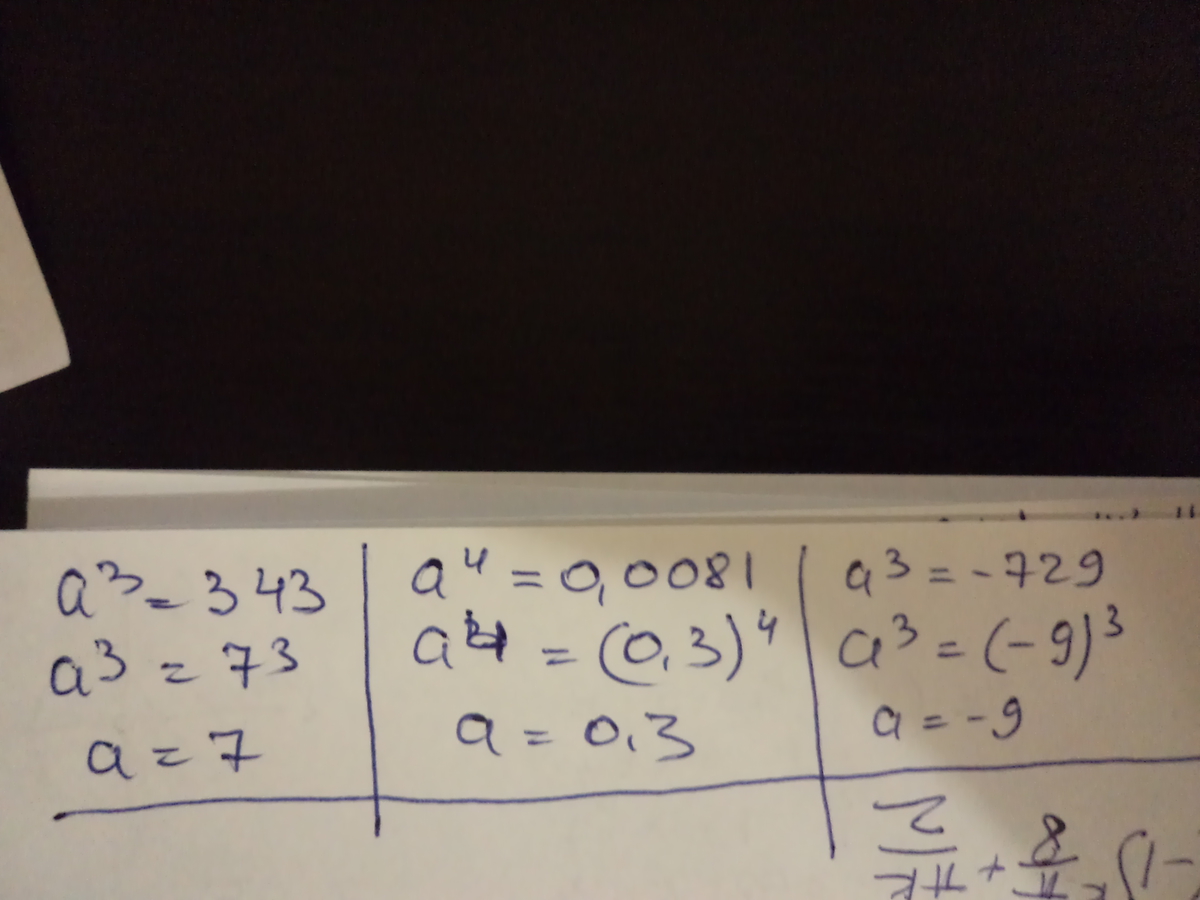 a³ = 343
a³ = 7³
a = 7
a⁴ = 0,0081
a⁴ = (0,3)⁴
a = 0,3
a³ = -729
a³ = (-9)³
a = -9